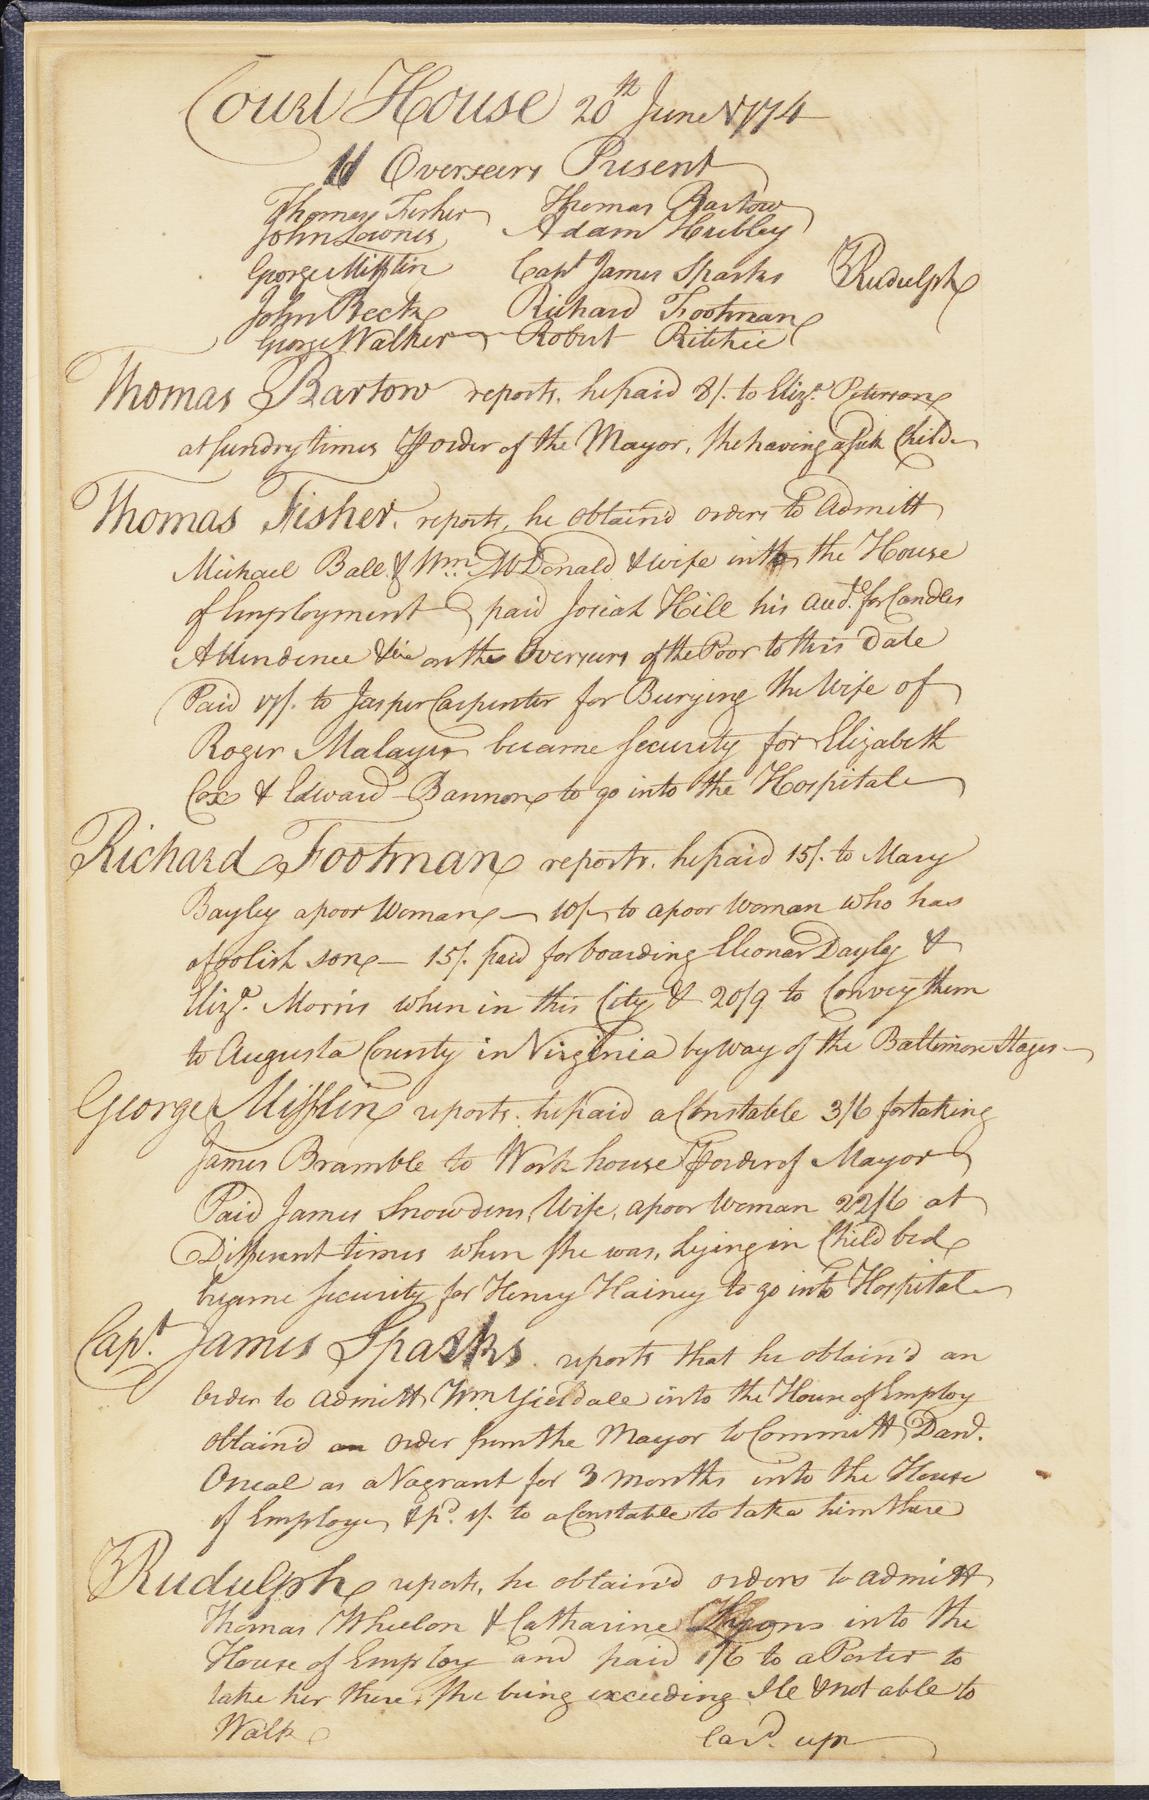 Court House 20th June 1774
11 Overseers Present
Thomas Fisher Thomas Bartow
John Lownes Adam Hubley
George Mifflin Capt James Sparks Rudulph
John Beck Richard Footman
George Walker Robert Ritchie
Thomas Bartow reports, he paid 8/. to Eliza. Peterson
at sundry times order of the Mayor, she having a sick Child
Thomas Fisher. reports, he obtain'd orders to Admitt
Michael Ball & Wm. McDonald & wife into the House
of Employment paid Josiah Hill his Acct. for Candles
Attendence on the Overseers of the Poor to this Date
Paid 17/. to Jasper Carpenter for Burying the Wife of
Roger became Security for Elizabeth
Cox & Edward Bannon to go into the Hospital
Richard Footman reports. he paid 15/. to Mary
Bayley a poor Woman — 10/ to a poor Woman who has
a foolish son — 15/. paid for boarding Eleonar Dayley &
Eliza. Morris when in this City & 20/9 to Convey them
to Augusta County in Virginia by way of the Baltimore Stages
George Mifflin reports. he paid a Constable 3/6 for taking
James Bramble to Work house order of Mayor
Paid James Snowdens Wife, a poor Woman 22/6 at
Different times when she was, Lying in Child bed
became Security for Henry Hainey to go into Hospital
Capt. James Sparks. reports that he obtain'd an
Order to Admitt Wm Yieldale into the House of Employ
obtain'd an order from the Mayor to Committ Danl.
Oneal as a Vagrant for 3 months into the House
of Employ & pd. to a Constable to take him there
Rudulph reports, he obtain'd orders to admitt
Thomas Wheelon & Catharine Lyons into the
House of Employ and paid 1/6 to a Porter to
take her there, she being exceeding Ile & not able to
Walk
Card. up